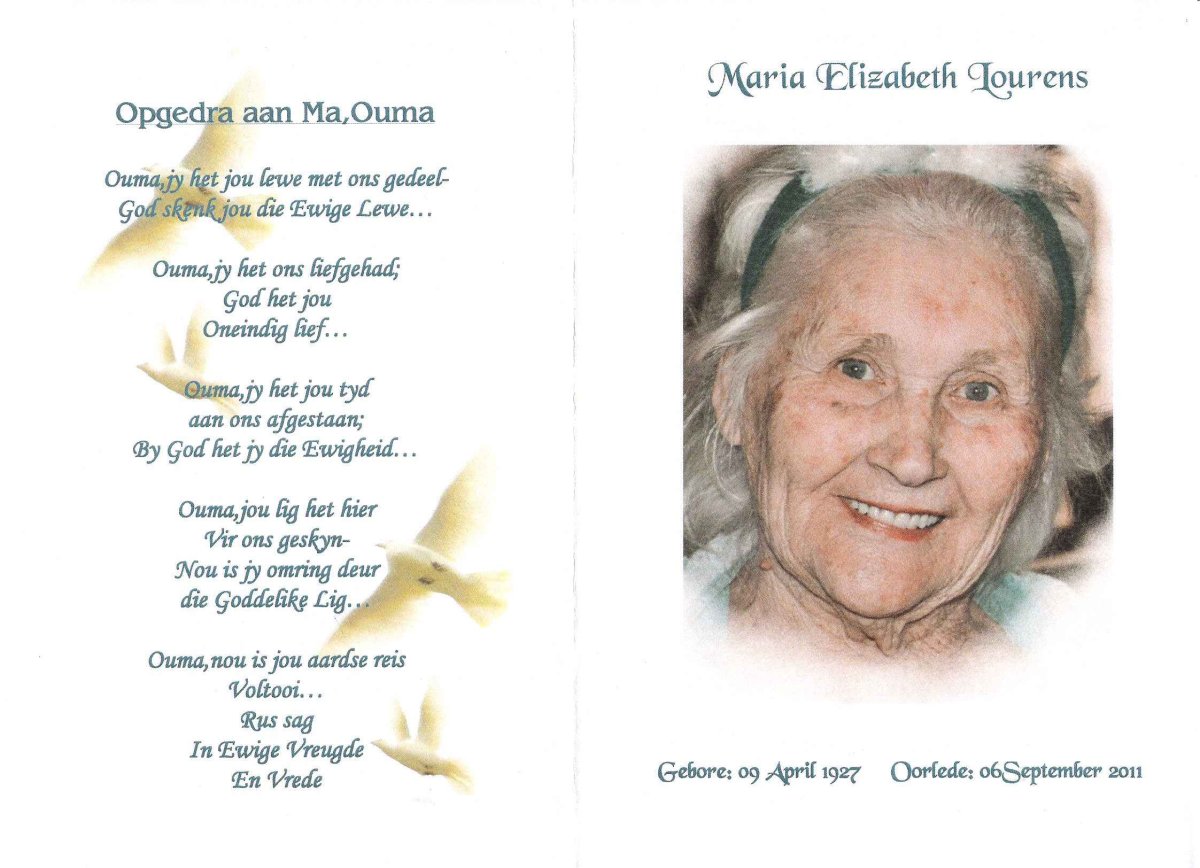 Opgedra aan Ma,Ouma
Ouma,jy het jou lewe met ons gedeel-
God skenk jou die Ewige Lewe...
Ouma,jy het ons liefgehad;
God het jou
Oneindig lief...
Ouma,jy het jou tyd
aan ons afgestaan;
By God het jy die Ewigheid...
Ouma,jou lig het hier
Vir ons geskyn-
Nou is jy omring deur
die Goddelike Lig...
Ouma,nou is jou aardse reis
Voltooi...
Rus sag
In Ewige Vreugde
En Vrede
Maria Elizabeth Lourens
Gebore: 09 April 1927 Oorlede: 06September 2011